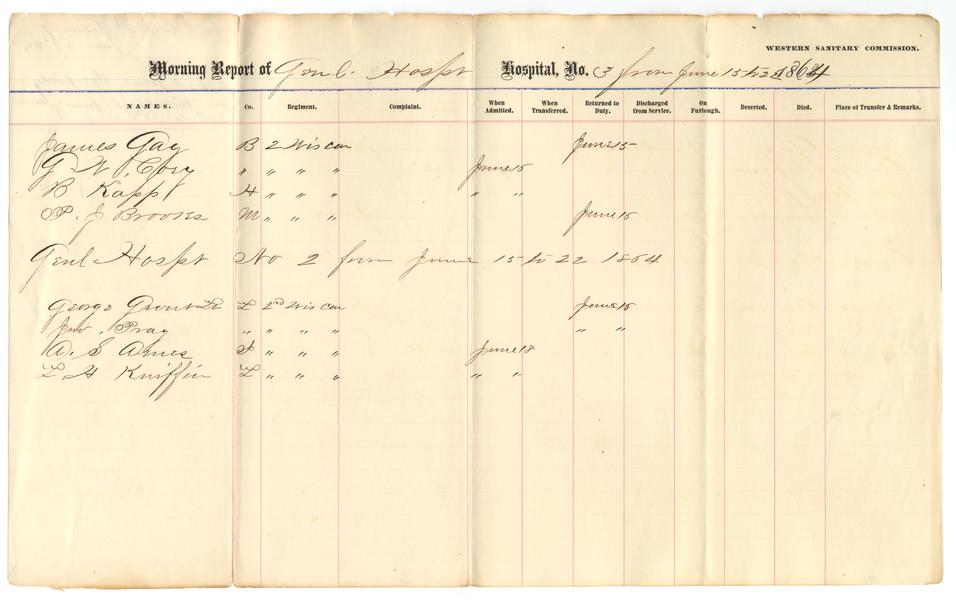 WESTERN SANITARY COMMISSION.
Morning Report of Genl. Hospt Hospital, No. 3 from June 15 to 22 1864
NAMES. Co. Regiment. Complaint. When Admitted. When Transferred. Returned to Duty. Discharged from Service. On Furlough. Deserted. Died. Place of Transfer & Remarks.
James Gay B 2 Wis Cav June 15
G W. Cory " " " " June 15
B Kapp H " " " " "
P. J Brooks M " " " June 15
Genl Hospt No 2 from June 15 to 22 1864
George L 2nd Wis Cav June 15
Jno. Pray " " " " " "
A. S Ames " " " June 18
L H Kniffin L " " " " "